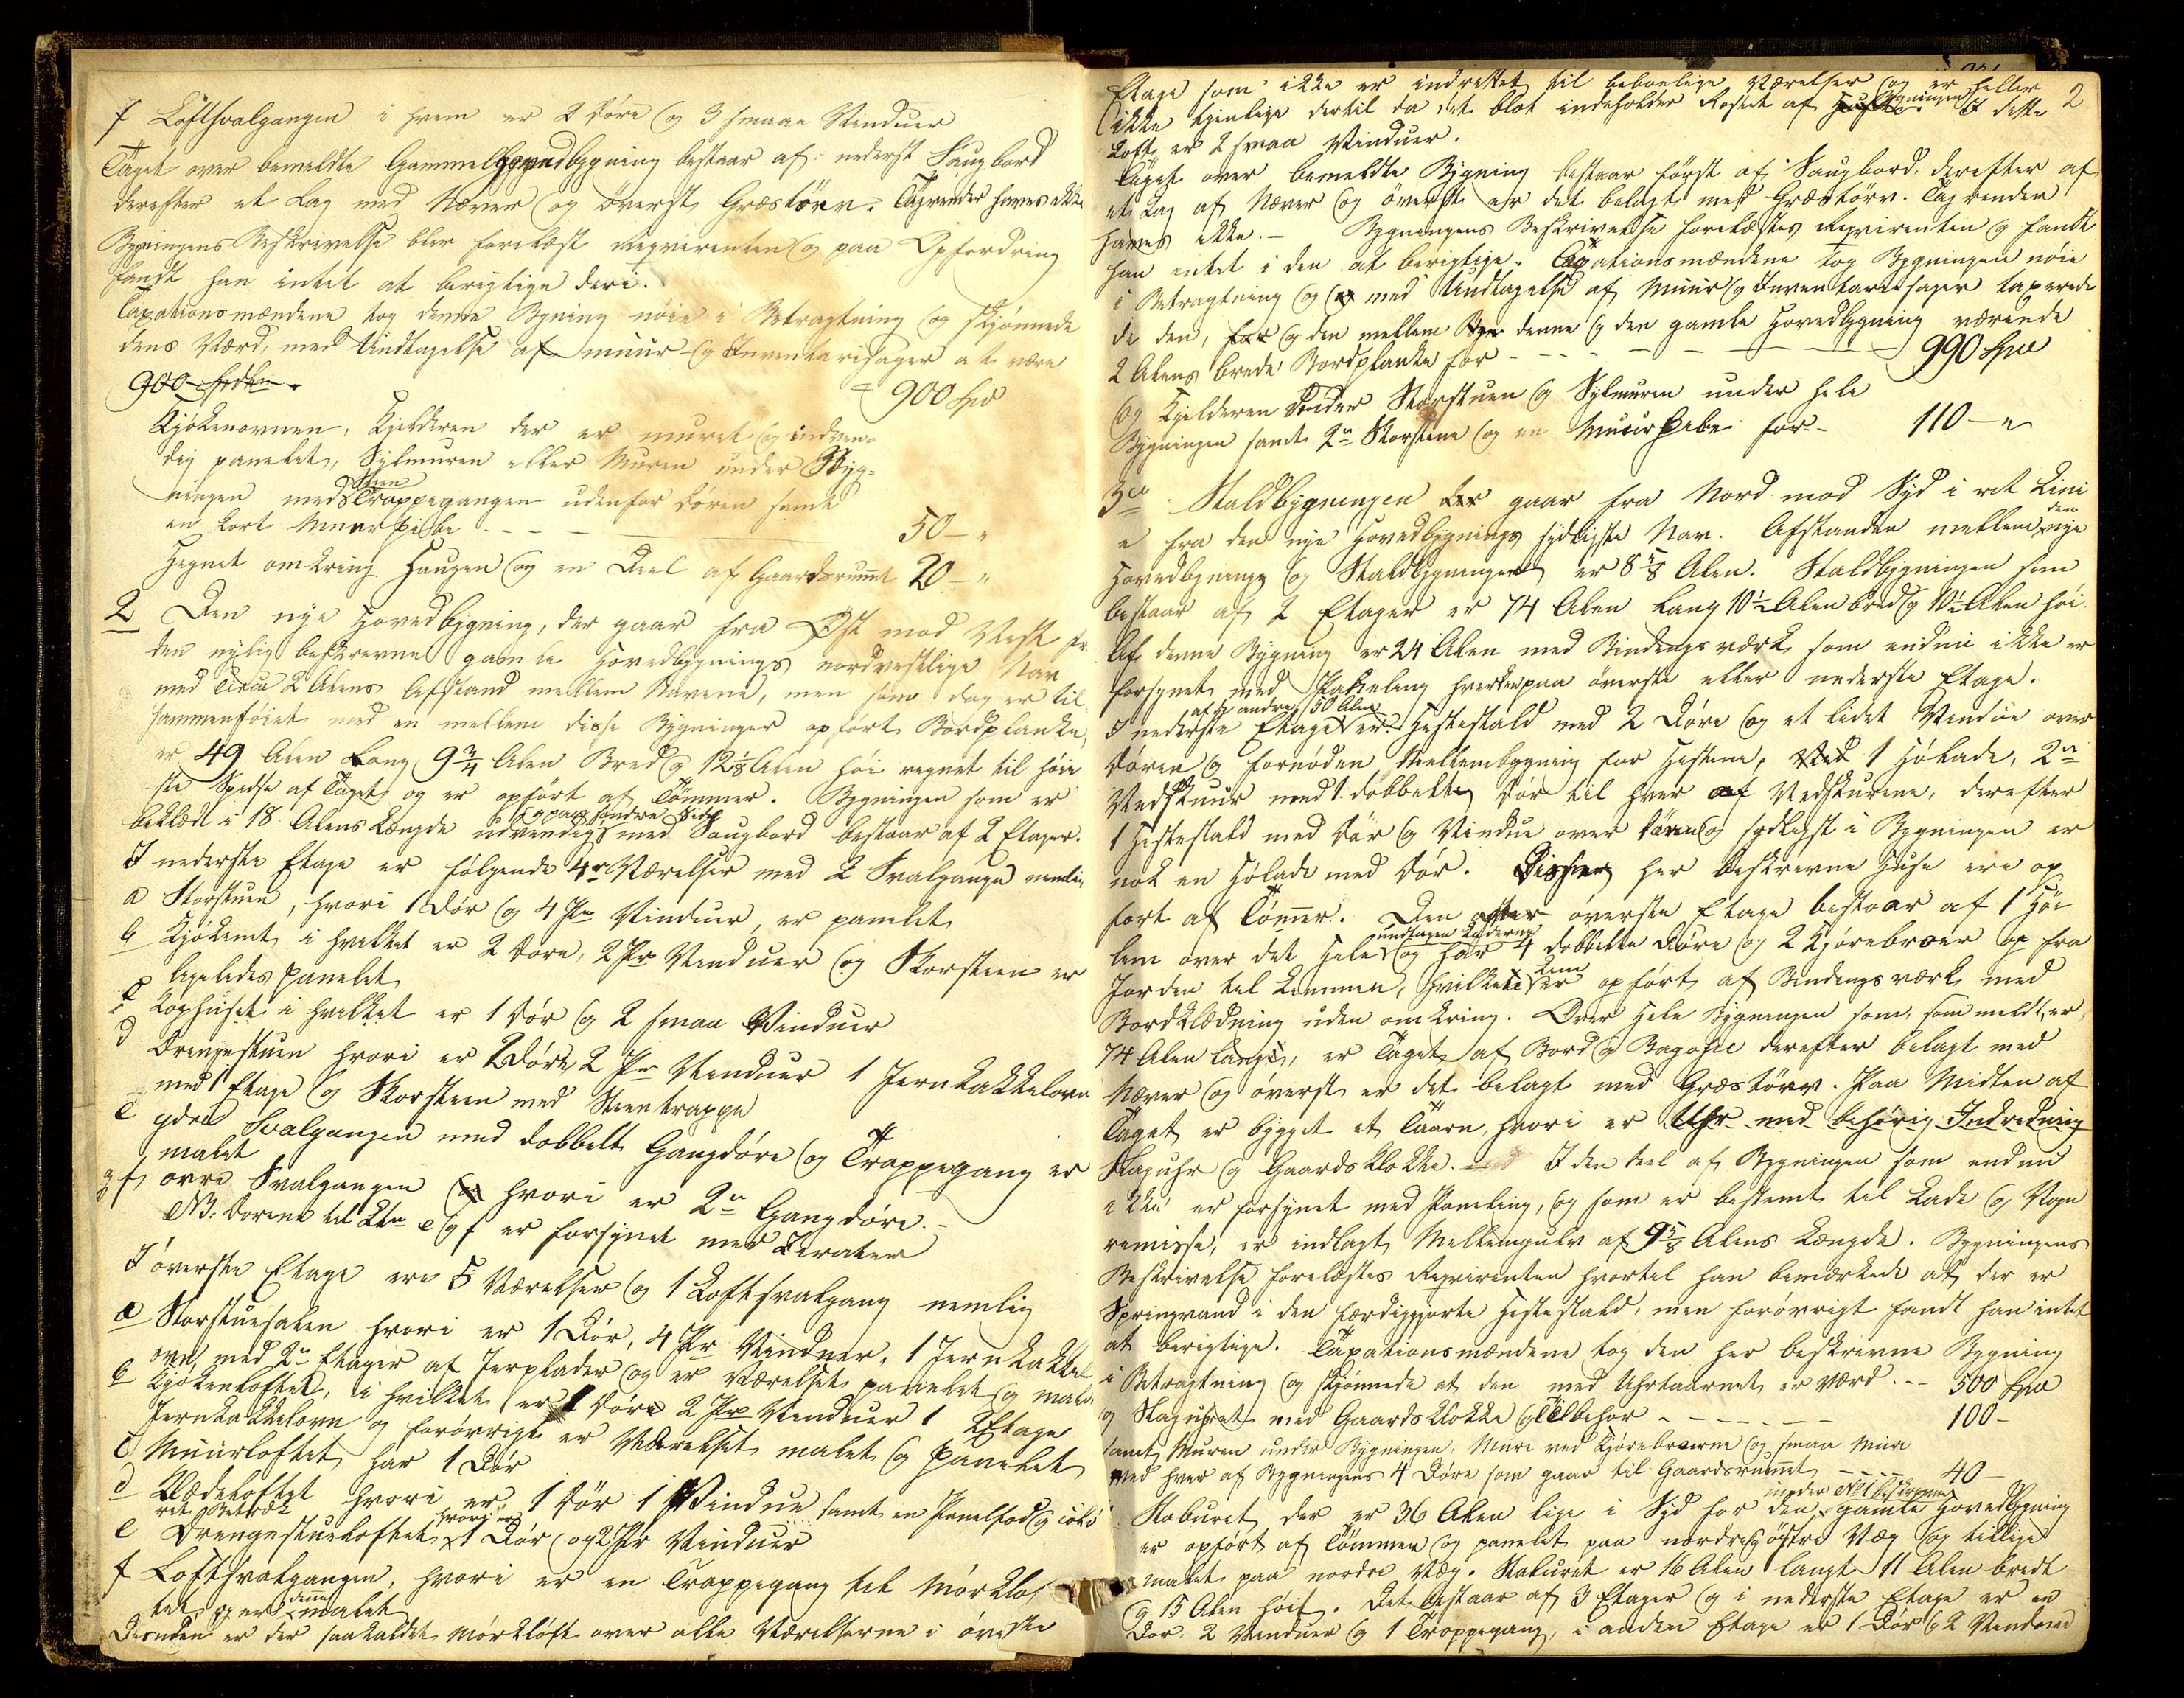 f Loftsvalgangen i hvem er 2 Döre og 3 smaae Vinduer
Taget over bemeldte Gammelhovedbygning bestaar af: nederst Saugbord
derefter et Lag med Næver og överst Græstörv. Tagrender haves ikke
Bygningens Beskrivelse blev forelæst Reqvirenten og paa Opfordring
fandt han intet at berigtige deri.
Taxationsmændene tog denne Bygning nöie i Betragtning og skjönnede
dens Værd, med Undtagelse af muur- og Inventariesager at være
900 Spd
Kjökenovnen, Kjelderen der er muret og indven-
dig panelet, Sylmuren eller Muren under Byg-
ningen med Steen Trappegangen udenfor Dören samt
en kort Muurpibe - - - 50 - "
Hegnet omkring Haugen og en Deel af Gaardsrumet 20 - "
2 Den nye Hovedbygning, der gaar fra Øst mod Vest fr
den nylig beskrevne gamle Hovedbygnings nordvestlige Nav
med circa 2 Alens Afstand mellem Navene, men som dog er til
sammenföiet med en mellem disse Bygninger opfört Bordplanke,
er 49 Alen Lang 9 3/4 Alen Bred og 12 1/8 Alen höi regnet til höie
ste Spidse af Taget og er opfört af Tömmer. Bygningen som er
beklædt i 18 Alens Længde udvendig og paa söndre Side med Saugbord bestaar af 2 Etager.
I nederste Etage er fölgende 4r Værelser med 2 Svalgange nemli,
a Storstuen, hvori 1 Dör og 4 Pr Vinduer, er panelet
b Kjökenet, i hvilket er 2 Döre, 2 Pr Vinduer og Skorsteen er
ligeledes panelet
c Koghuset i hvilket er 1 Dör og 2 smaa Vinduer
d Drengestuen hvori er 2 Döre, 2 Pr Vinduer 1 Jernkakkelovn
med 1 Etage og Skorsteen med Steentrappe
e ydre Svalgangen med dobbelt Gangdöre og Trappegang er
malet
f övre Svalgangen hvori er 2n Gangdöre.-
NB: Dörene til Ltr e og f er forsynet med Zerater
I överste Etage ere 5 Værelser og 1 Loftsvalgang nemlig
a Storstuesalen hvori er 1 Dör, 4 Pr Vinduer, 1 Jernkakkel
ovn med 2n Etager af Jerplader og er Værelset panelet og malet
b Kjökenloftet, i hvilket er 1 Döre 2 Pr Vinduer 1 2 Etage
Jernkakkelovn og forövrigt er Værelset malet og panelet
c Muurloftet har 1 Dör
d Klædeloftet hvori er 1 Dör 1 Vindue samt en Panelfod og
ret Betræk
e Drengestueloftet hvori er 1 Dör og 2 Pr Vinduer
f Loftsvalgangen, hvori er en Trappegang til Mörklof
tet og er den malet
Desuden er der saakaldet Mörkloft over alle Værelserne i överste
2
Etage som ikke er indrettet til beboelige Værelser og er heller
ikke tjenlige dertil da det blot indeholder Rostet af Bygningen I dette
Loft er 2 smaa Vinduer.
Taget over bemeldte Bygning bestaar först af Saugbord. derefter af
et Lag af Næver og överst er det belagt med Græstörv. Tagrender
haves ikke.- Bygningens Beskrivelse forelæstes Reqvirenten og fandt
han intet i den at berigtige. Taxationsmændene tog Bygningen nöie
i Betragtning og med Undtagelse af Muur og Inventariesager taxerede
de den, for og den mellem denne og den gamle Hovedbygning værende
2 Alens brede Bordplanke for - - - - 990 Spd
og Kjelderen under Storstuen og Sylmuren under hele
Bygningen samt 2n Skorstene og en Muurpibe for - 110 - "
3die Staldbygningen der gaar fra Nord mod Syd i ret Lini
e fra den nye Hovedbygnings sydligste Nav. Afstanden mellem den nye
Hovedbygning og Staldbygningen er 8 5/8 Alen. Staldbygningen som
bestaar af 2 Etager er 74 Alen Lang 10 1/2 Alen bred og 10 1/2 Alen höi.
Af denne Bygning er 24 Alen med Bindingsværk som endnu ikke er
forsynet med Paneling hverken paa överste eller nederste Etage.
I nederste Etage af de andre 50 Alen er Hestestald med 2 Döre og et lidet Vindue over
Dören og fornöden Mellembygning for Hestene, 1 Hölade, 2n
Vedskuur med 1 dobbelt Dör til hver af Vedskurene, derefter
1 Hestestald med Dör og Vindue over Dören og sydligst i Bygningen er
nok en Hölade med Dör. Disse her beskrevne Huse ere op
fört af Tömer. Den överste Etage bestaar af 1 Höe
lem over det Hele undtagen Laderne og har 4 dobbelte Döre og 2 Kjörebroer op fra
Jorden til Lemmen, hvilken Lem er opfört af Bindingsværk med
Bordklædning uden omkring. Over hele Bygningen som, som meldt, er
74 Alen lang, er Taget af Bord og Baghse derefter belagt med
Næver og överst er det belagt med Græstörv. Paa Midten af
Taget er bygget et Taarn, hvori er Uhr med behörig Indredning
Slaguhr og Gaardsklokke. I den Deel af Bygningen som endnu
ikke er forsynet med Paneling, og som er bestemt til Lade og Vogn
remisse, er indlagt Mellemgulv af 9 5/8 Alens Længde. Bygningens
Beskrivelse forelæstes Reqvirenten hvortil han bemærkede at der er
Springvand i den færdiggjorte Hestestald, men forövrigt fandt han intet
at berigtige. Taxationsmændene tog den her beskrevne Bygning
i Betragtning og skjönnede at den med Uhrtaarnet er værd - - 500 Spd
og Slaguhret med Gaardsklokke og Tilbehör - - - - - 100 -
samt Muren under Bygningen, Mure ved Kjörebroerne og smaa Mure
ved hver af Bygningens 4 Döre som gaar til Gaardsrumet - - - 40 -
Staburet, der er 36 Alen lige i Syd for den under No 1 beskrevne gamle Hovedbygning
er opfört af Tömmer og panelet paa nordre og östre Væg og tillige
malet paa nordre Væg. Staburet er 16 Alen langt 11 Alen bredt
og 15 Alen höit. Det bestaar af 3 Etager og i nederste Etage er en
Dör 2 Vinduer og 1 Trappegang, i anden Etage er 1 Dör og 2 Vinduer